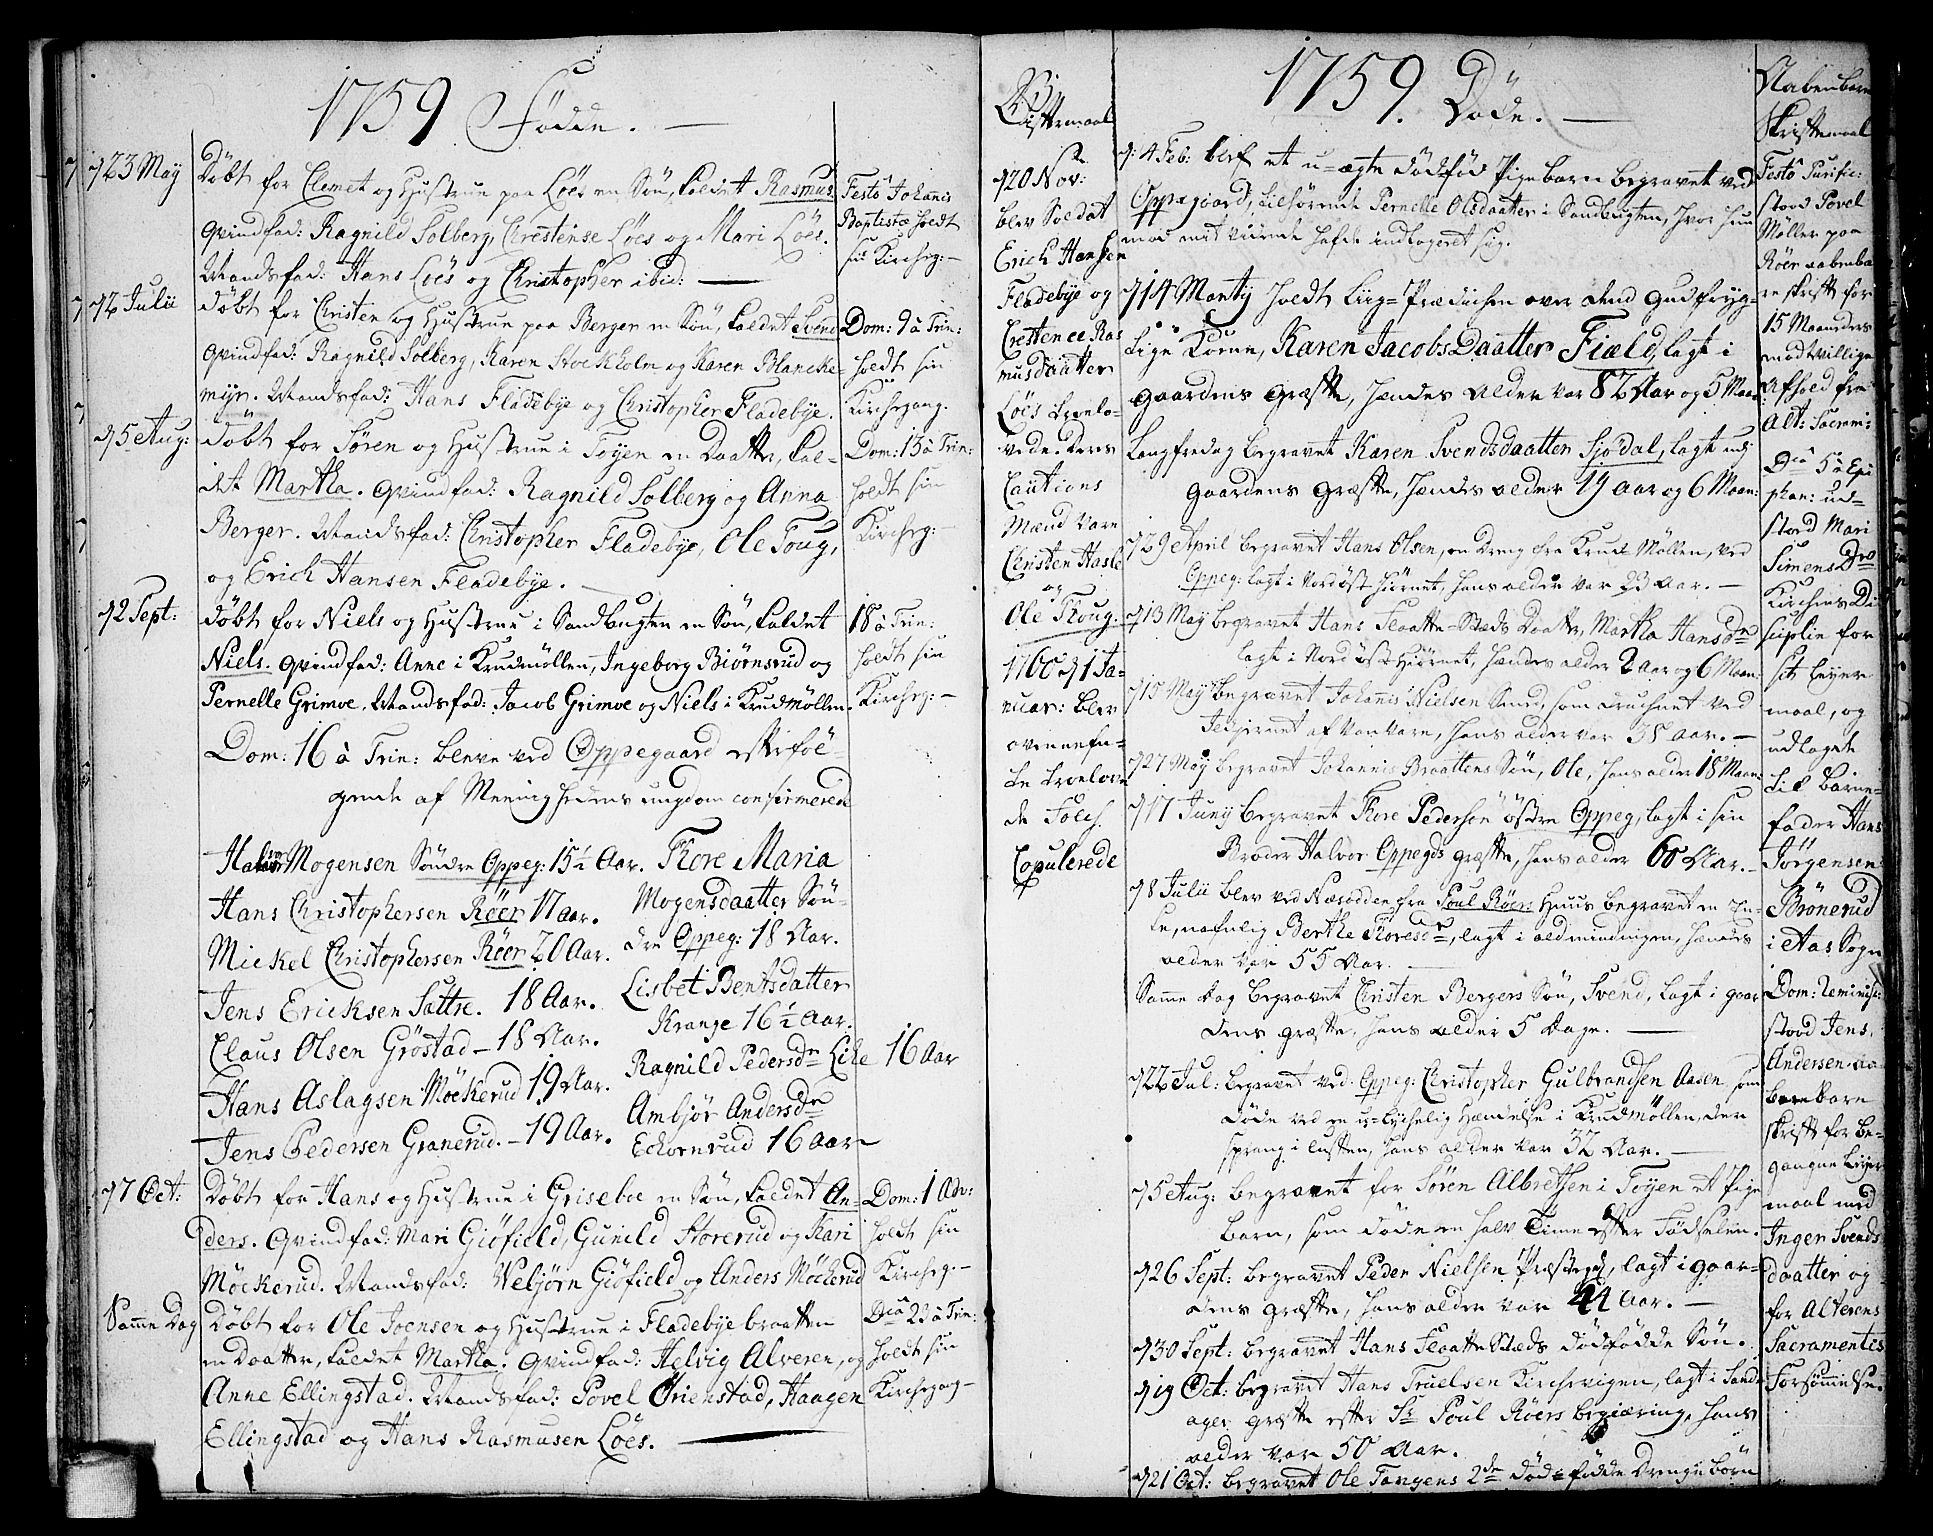 1759 Födde.
d 23 May Döbt for Clemet og Hustrue paa Löes en Sön, kaldet Rasmus.
Qvindfad: Ragnild Solberg, Christense Löes og Mari Löes.
Mandsfad: Hans Löes og Christopher ibid:
Festo Johannis
Baptistæ holdt
sin Kircheg:
d 2 Julii Döbt for Christen og Hustrue paa Berger en Sön, kaldet Svend
Qvindfad: Ragnild Solberg, Karen Stockholm og Karen Blancke-
myr. Mandsfad: Hans Fladebye og Christopher Fladebye.
Dom: 9 à Trin:
holdt sin
Kirchegang.
d 5 Aug: Döbt for Sören og Hustrue i Töyen en Daatter, kal-
det Martha. Qvindfad: Ragnild Solberg og Anna
Berger. Mandsfad: Christopher Fladebye, Ole Toug,
og Erich Hansen Fladebye.
Dom: 13 à Trin:
holdt sin
Kircheg:
d 2 Sept: Döbt for Niels og Hustrue i Sandbugten en Sön, kaldet
Niels. Qvindfad: Anne i Krudmöllen, Ingeborg Biörnsrud og
Pernelle Grimoe. Mandsfad: Jacob Grimoe og Niels i Krudmöllen.
18 à Trin:
holdt sin
Kircheg:
Dom: 16 à Trin: bleve ved Oppegaard efterföl-
gende af Meenighedens ungdom confirmerede
Halvor Mogensen Söndre Oppeg: 15½ Aar.
Hans Christophersen Röer 17 aar.
Mickel Christophersen Röer 20 Aar.
Jens Ericksen Sættre. 18 Aar.
Claus Olsen Gröstad - 18 Aar.
Hans Aslagsen Möckerud 19 Aar.
Jens Pedersen Granerud. - 19 Aar.
Flore Maria
Mogensdaatter Sön-
dre Oppeg: 18 Aar.
Lisbet Bentsdatter
Krange 16½ Aar.
Ragnild Pedersdr Like 16 Aar
Ambjör Andersdr
Eckornrud 16 aar
d 7 Oct: Döbt for Hans og Hustrue i Griseboe en Sön, kaldet An-
ders. Qvindfad: Mari Giöfield, Gunild Storerud og Kari
Möckerud. Mandsfad: Vebjörn Giöfield og Anders Möckerud
Dom: 1 Adv:
holdt sin
Kircheg:
Samme Dag Döbt for Ole Joensen og Hustrue i Fladebye braatten
en Daatter, kaldet Martha. Qvindfad: Helvig Alveren, og
Anne Ellingstad. Mandsfad: Povel Örienstad, Haagen
Ellingstad og Hans Rasmusen Löes.
Dca 23 à Trin:
holdt sin
Kirchegang
d 20 Nov:
blev Soldat
Erich Hansen
Fladebye og
Crettence Ras
musdaatter
Löes troelo-
vede. Deres
Cautions
Mænd vare
Christen Hasle
og
Ole Toug.
1760 d 1 Ja-
nuar: blev
ovennefn-
te troelove
de Folch
Copulerede
1759. Döde.
d: 4 Feb: blef et u-ægte dödföd Pigebarn begravet ved
Oppegaard, tilhörende Pernelle Olsdaatter i Sandbugten, hvor hun
mod mit vidende hafde indlogeret sig.
d 14 Martij holdt Liig-Prædichen over dend gudfryg-
tige Kone, Karen Jacobs Daatter Fiæld, lagt i
gaardens græfte, hendes alder var 82 Aar og 5 Maan:
Langfredag begravet Karen Svendsdaatter Sjödal, lagt udi
gaardens græfte, hendes alder 19 aar og 6 Maan:
d 29 April begravet Hans Olsen, en Dreng fra Krud-Möllen, ved
Oppeg: lagt i Nordöst hiörnet, hans alder var 23 Aar.
d 13 May begravet Hans Floatte-Stæds Daatter, Martha Hansdr
lagt i Nord öst hiörnet, hendes alder 2 aar og 6 Maan:
d 15 May begravet Johannis Nielsen Smed, som druchnet ved
af, hans alder var 38 Aar.
d 27 May begravet Johannis Braattens Sön, Ole, hans alder 18 Maan:
d 17 Junij begravet Flore Pedersön östre Oppeg, lagt i sin
Broder Halvor Oppegds græfte, hans alder 60 Aar.
d 8 Julii blev ved Næsodden fra Poul Röers Huus begravet en En-
ke, nafnlig Berthe Floresdr, lagt i aldmindingen, hendes
alder var 55 Aar.
Samme dag begravet Christen Bergers Sön, Svend, lagt i gaar
dens græfte, hans alder 5 dage.
d 22 Jul: begravet ved Oppeg: Christopher Gulbrandsen Aasen, som
döde ved en u-lychelig Hændelse i Krudmöllen, der
sprang i luften, hans alder var 32 Aar.
d 5 Aug: begravet for Sören Albretsen i Töyen et Pige
barn, som döde en halv Time efter Födselen.
d 26 Sept: begravet Peder Nielsen Præstegd, lagt i gaar-
dens græfte, hans alder var 44 Aar.
d 30 Sept: begravet Hans Floatte Stæds dödfödde Sön.
d 19 Oct: begravet Hans Truelsen Kirchevigen, lagt i Sand-
ager græfte efter Sr Poul Röers begiæring, hans
alder var 50 Aar.
d 21 Oct: begravet Ole Tangens 2de död-födde Drenge börn
Aabenbare
Skriftemaal
Festo Purific:
stood Povel
Möller paa
Röer aabenba
re skrift for
15 Maaneders
modtvillige
Afhold fra
Alt: Sacram:
Dca 5 à Epi
phan: ud-
stood Mari
Simens Dr
Kirchens Di
siplin for
sit Leyer
maal, og
udlagde
til Barne-
fader Hans
Jörgensen
Brönerud
i Aas Sogn
Dom: Reminisc:
stood Jens
Andersen aa-
benbare
skrift for be-
gangne Leyer
maal med
Inger Svends
daatter og
for Alterens
Sacramentes
Forsömmelse.